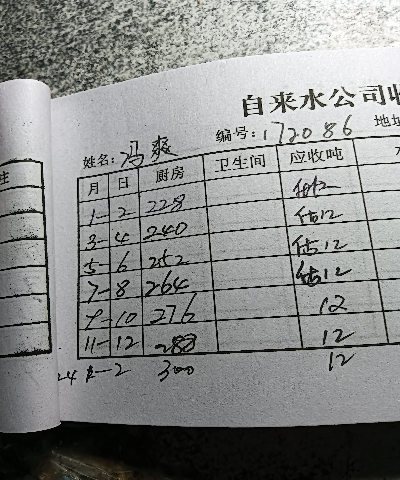 自来水公司收
姓名: 冯爽 编号: 172086 地址
月 日 厨房 卫生间 应收吨
1-2 228 估12
3-4 240 估12
5-6 252 估12
7-8 264 估12
9-10 276 12
11-12 288 12
24 1-2 300 12